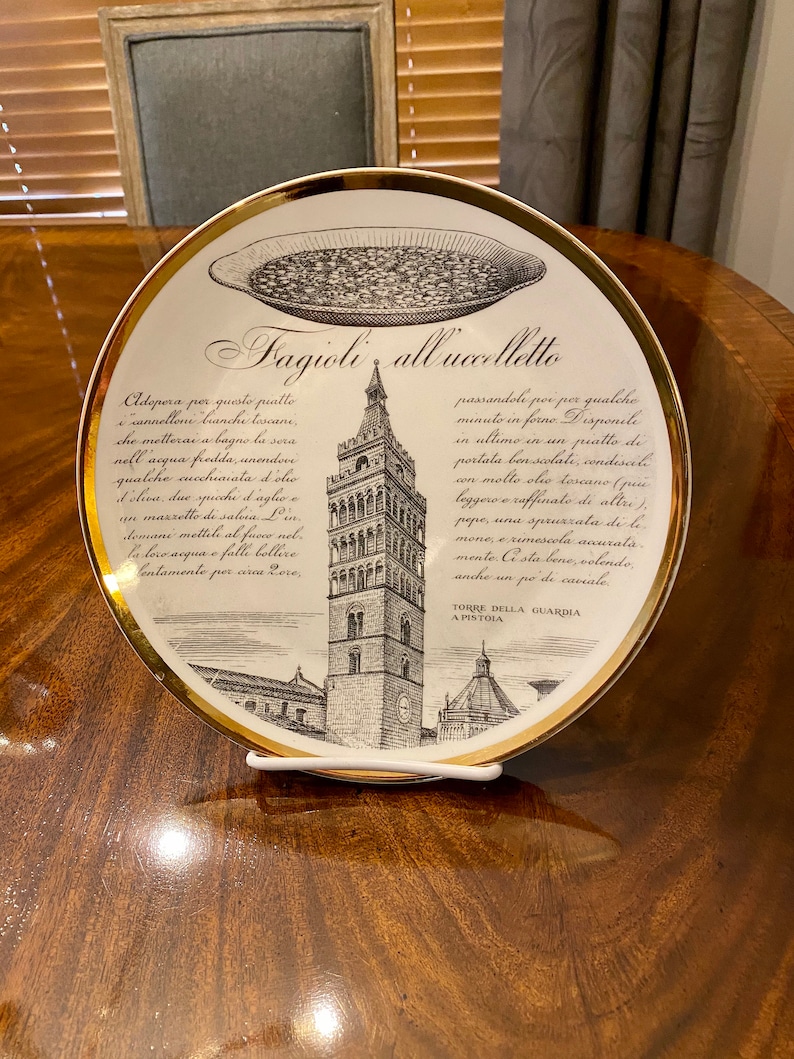 Fagioli all'uccelletto
Adopera per questo piatto
i "cannelloni" bianchi toscani,
che metterai a bagno la sera
nell'acqua fredda, unendovi
qualche cucchiaiata d'olio
d'oliva, due spicchi d'aglio e
un mazzetto di salvia. L'in
domani mettili al fuoco nel-
la loro acqua e falli bollire
lentamente per circa 2 ore,
passandoli poi per qualche
minuto in forno. Disponili
in ultimo in un piatto di
portata ben scolati, condiscili
con molto olio toscano (più
leggero e raffinato di altri),
pepe, una spruzzata di li-
mone, e rimescola accurata-
mente. Ci sta bene, volendo,
anche un po' di caviale.
TORRE DELLA GUARDIA
A PISTOIA